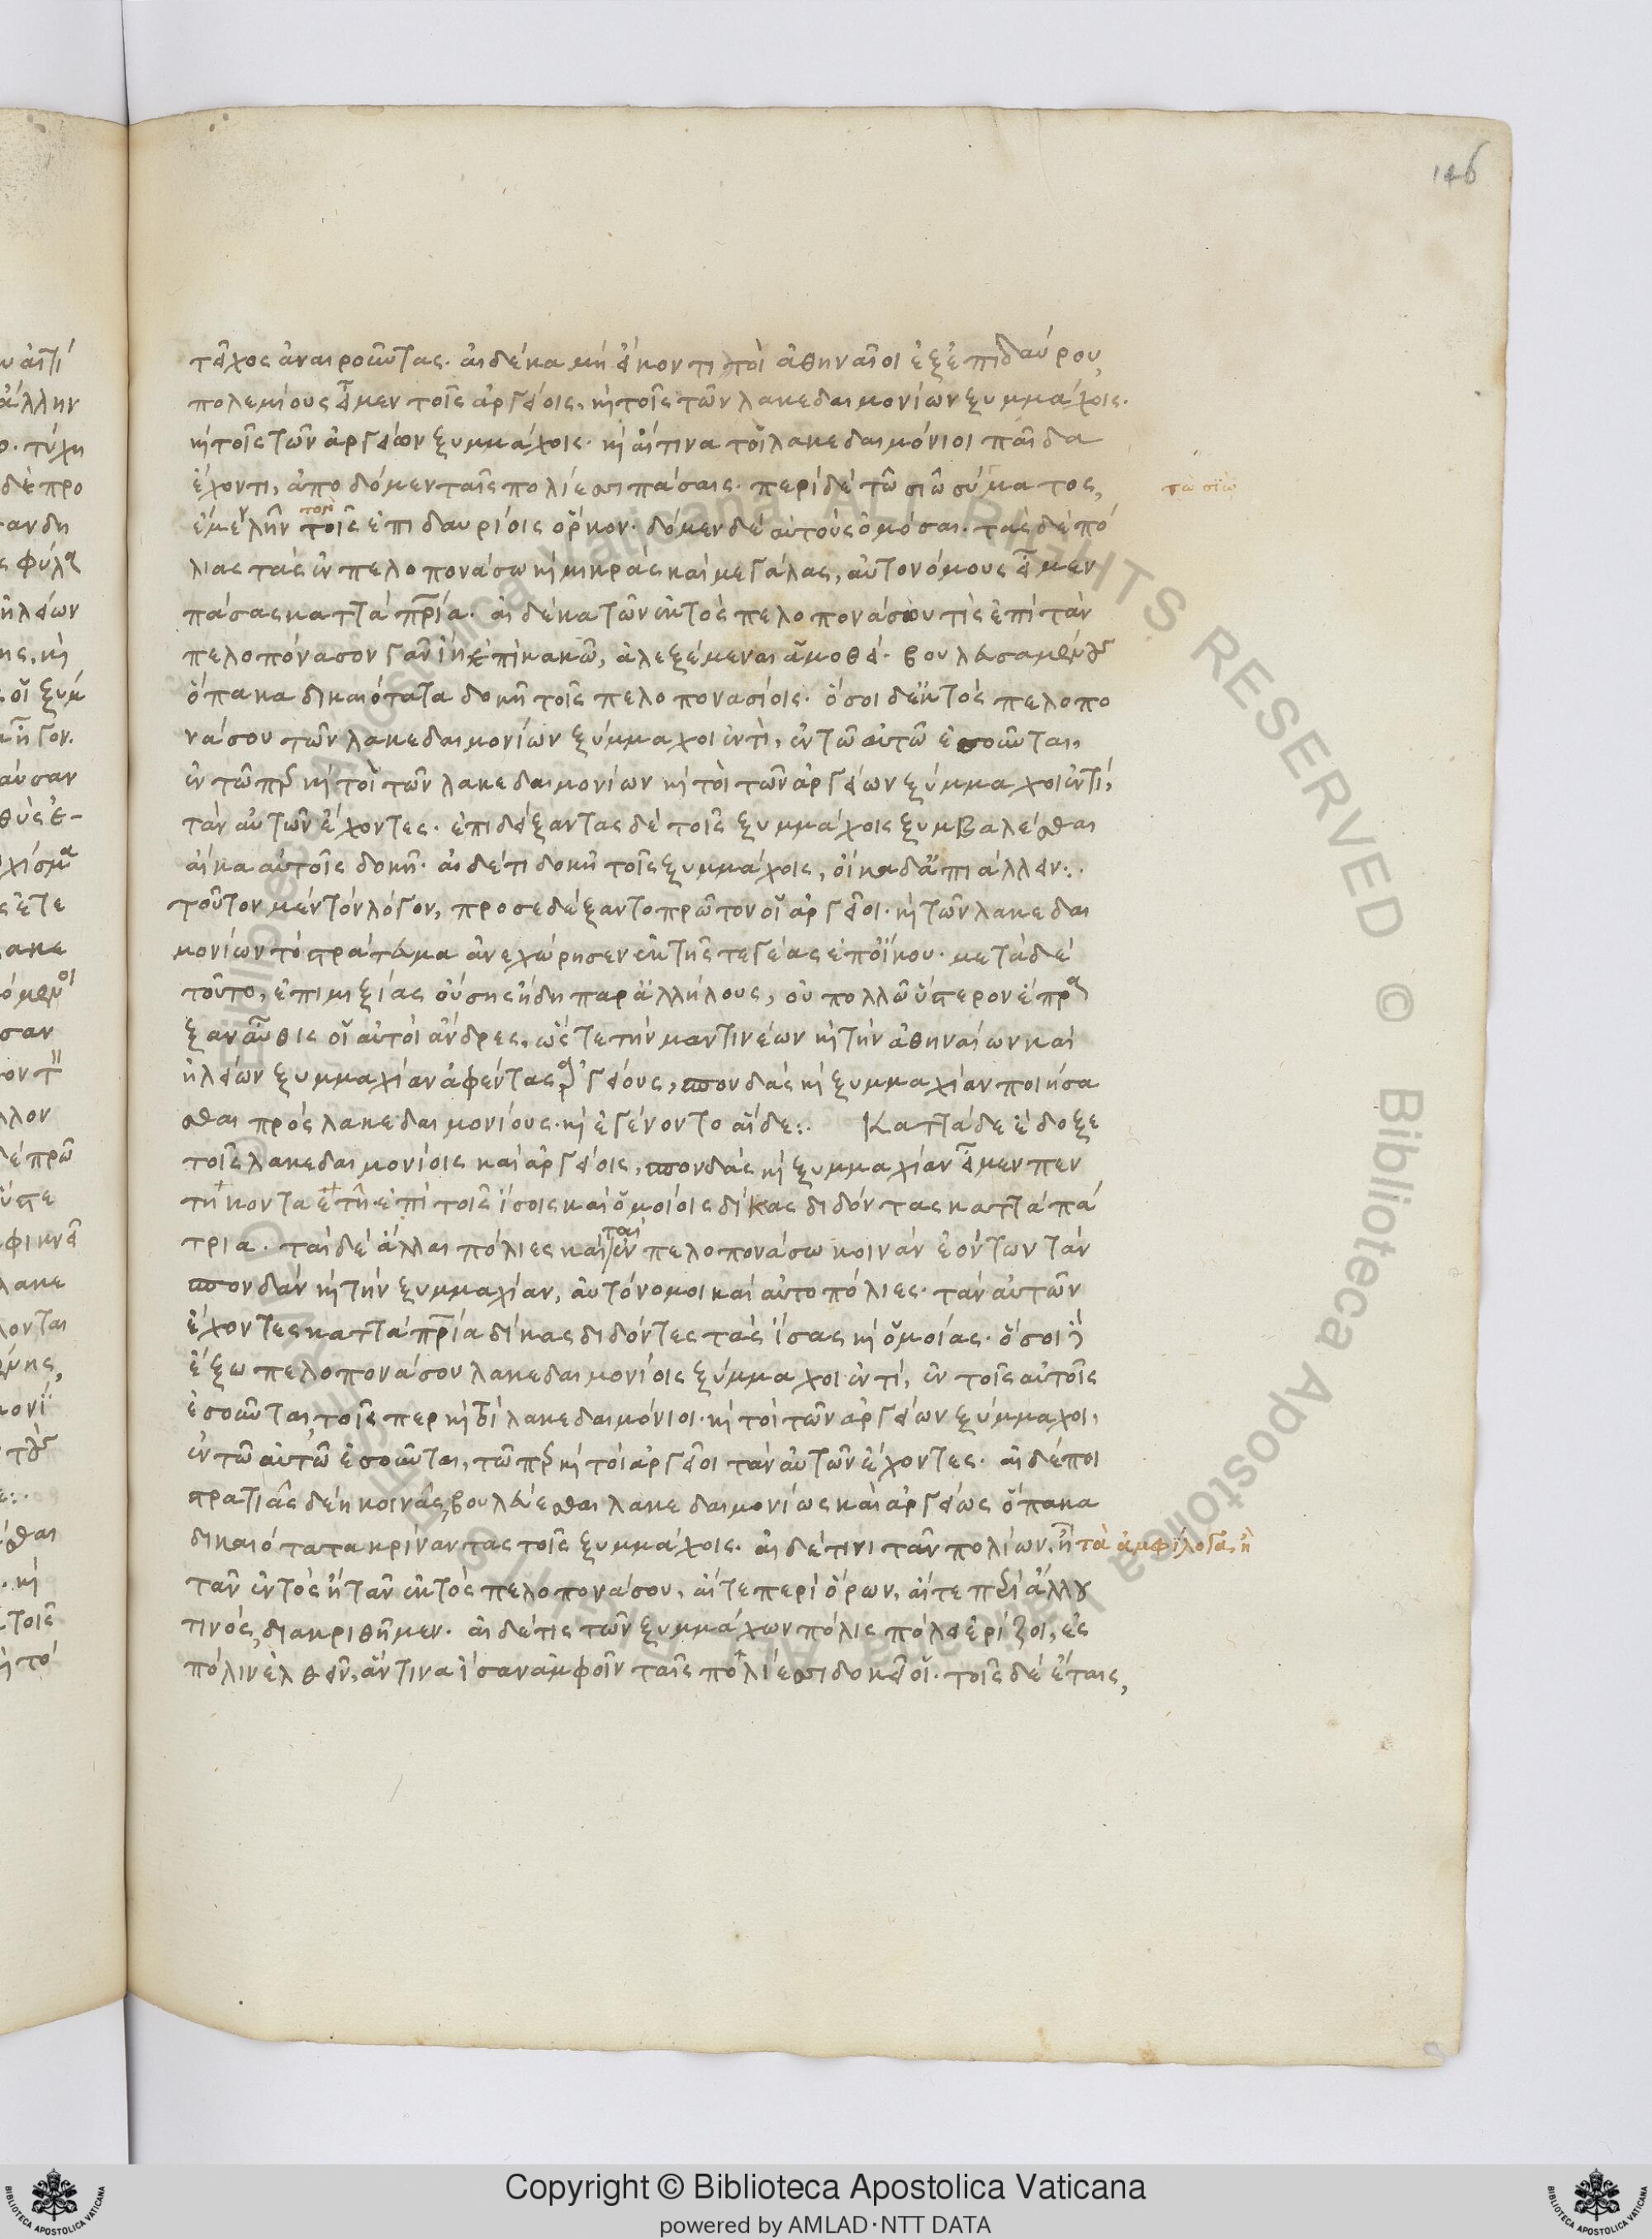 146
τεῖχος ἀναιροῦντας. αἰ δέ κα μὴ εἴκοντι τοὶ ἀθηναῖοι ἐξ ἐπιδαύρου,
πολεμίους εἶμεν τοῖς ἀργείοις, κὴ τοῖς τῶν λακεδαιμονίων ξυμμάχοις.
κὴ τοῖς τῶν ἀργείων ξυμμάχοις. κὴ αἴ τινα τοὶ λακεδαιμόνιοι παῖδα
ἔχοντι, ἀποδόμεν ταῖς πολίεσι πάσαις. περὶ δὲ τῶ σιῶ σύματος,
τὼ σιὼ
ἐμὲν λῆν τοῖς ἐπιδαυρίοις ὅρκον. δόμεν δὲ αὐτοὺς ὀμόσαι. τὰς δὲ πό
λιας τὰς ἐν πελοπονάσω κὴ μικρὰς καὶ μεγάλας, αὐτονόμους εἶμεν
πάσας καττὰ πρια. αἰ δέ κα τῶν ἐκτὸς πελοπονάσου τὶς ἐπὶ τὰν
πελοπόνασον γᾶν ἴη ἐπὶ κακῶ, ἀλεξέμεναι ἁμοθεὶ βουλευσαμένους
ὅπα κα δικαιότατα δοκῆ τοῖς πελοπονασίοις. ὅσοι δ' ἐκτὸς πελοπο
νάσου τῶν λακεδαιμονίων ξύμμαχοι ἐντὶ, ἐν τῶ αὐτῶ ἐσοῦνται,
ἐν τῶ περ κὴ τοὶ τῶν λακεδαιμονίων κὴ τοὶ τῶν ἀργείων ξύμμαχοι ἐντὶ,
τὰν αὐτῶν ἔχοντες. ἐπιδείξαντας δὲ τοῖς ξυμμάχοις ξυμβαλέσθαι
αἴ κα αὐτοῖς δοκῆ. αἰ δέ τι δοκῆ τοῖς ξυμμάχοις, οἴκαδ' ἀπιάλλειν:.
τοῦτον μὲν τὸν λόγον, προσεδέξαντο πρῶτον οἱ ἀργεῖοι. κὴ τῶν λακεδαι
μονίων τὸ στράτευμα ἀνεχώρησεν ἐκ τῆς τεγέας ἐπ' οἴκου. μετὰ δὲ
τοῦτο, ἐπιμιξίας οὔσης ἤδη παρ' ἀλλήλους, οὐ πολλῶ ὕστερον ἔπρα
ξαν αὖθις οἱ αὐτοὶ ἄνδρες, ὥστε τὴν μαντινέων κὴ τὴν ἀθηναίων καὶ
ἠλείων ξυμμαχίαν ἀφέντας ἀργείους, σπονδὰς κὴ ξυμμαχίαν ποιήσα
σθαι πρὸς λακεδαιμονίους. κὴ ἐγένοντο αἵδε:. Καττάδε ἔδοξε
τοῖς λακεδαιμονίοις καὶ ἀργείοις, σπονδὰς κὴ ξυμμαχίαν εἶμεν πεν
τήκοντα ἔτη. ἐπὶ τοῖς ἴσοις καὶ ὁμοίοις δίκας διδόντας καττὰ πά
τρια. ταὶ δὲ ἄλλαι πόλιες καὶ ταὶ ἐν πελοπονάσω κοινᾶν ἐόντων τᾶν
σπονδᾶν κὴ τὴν ξυμμαχίαν, αὐτόνομοι καὶ αὐτοπόλιες. τὰν αὐτῶν
ἔχοντες καττὰ πρια δίκας διδόντες τὰς ἴσας κὴ ὁμοίας. ὅσοι δὲ
ἔξω πελοπονάσου λακεδαιμονίοις ξύμμαχοι ἐντὶ, ἐν τοῖς αὐτοῖς
ἐσοῦνται, τοῖς περ κὴ τοὶ λακεδαιμόνιοι. κὴ τοὶ τῶν ἀργείων ξύμμαχοι,
ἐν τῶ αὐτῶ ἐσοῦνται, τῶ περ κὴ τοὶ ἀργεῖοι τὰν αὐτῶν ἔχοντες. αἰ δέ ποι
στρατιᾶς δέη κοινᾶς, βουλεύεσθαι λακεδαιμονίως καὶ ἀργείως ὅπα κα
δικαιότατα κρίναντας τοῖς ξυμμάχοις. αἰ δέ τινι τᾶν πολίων, ἦ τὰ ἀμφίλογα, ἢ
τᾶν ἐντὸς ἢ τᾶν ἐκτὸς πελοπονάσου, αἴτε περὶ ὅρων, αἴτε περὶ ἄλλου
τινὸς, διακριθῆμεν. αἰ δέ τις τῶν ξυμμάχων πόλις πόλει ἐρίζοι, ἐς
πόλιν ἐλθεῖν, ἅντινα ἴσαν ἀμφοῖν ταῖς πολίεσι δοκεῖ οἱ. τοῖς δὲ ἔταις,
Copyright © Biblioteca Apostolica Vaticana
powered by AMLAD·NTT DATA